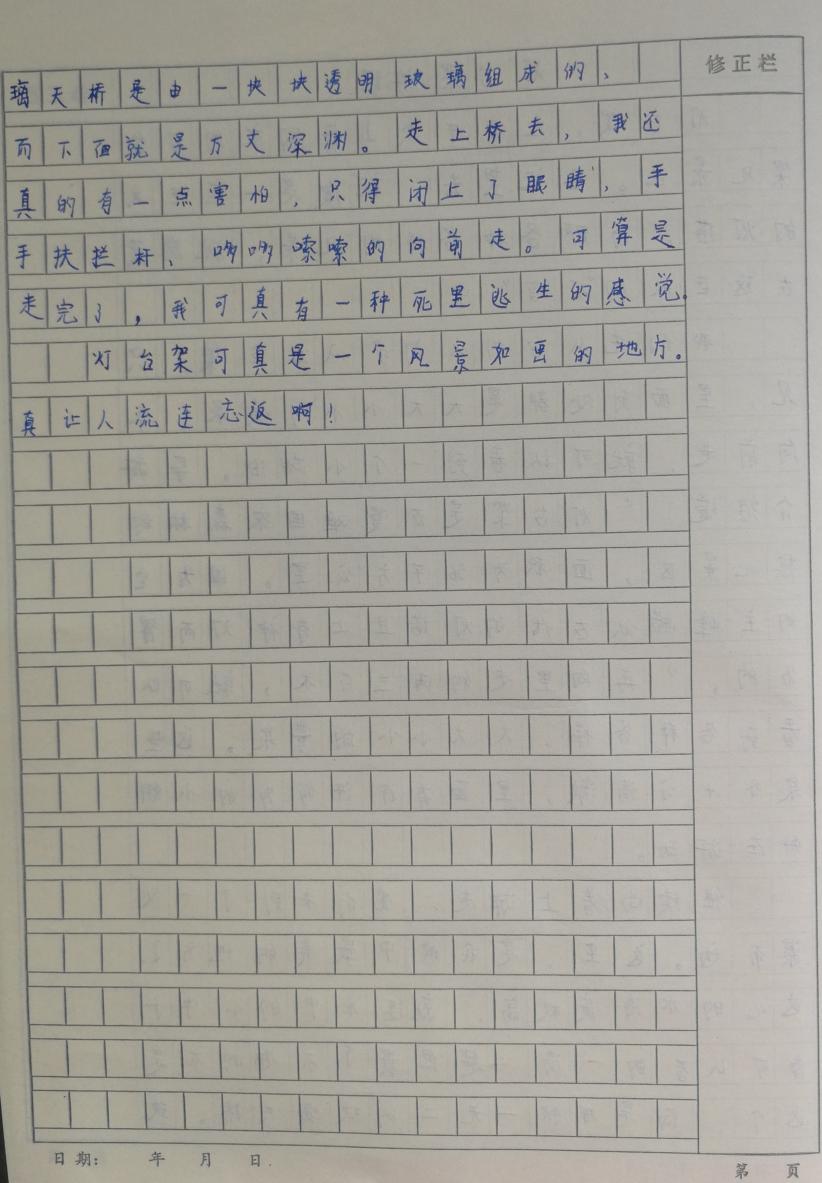 修正栏
璃天桥是由一块块透明玻璃组成的、
而下面就是万丈深渊。走上桥去，我还
真的有一点害怕，只得闭上了眼睛，手
手扶拦杆、哆哆嗦嗦的向前走。可算是
走完了，我可真有一种死里逃生的感觉。
灯台架可真是一个风景如画的地方。
真让人流连忘返啊！
日期： 年 月 日
第 页